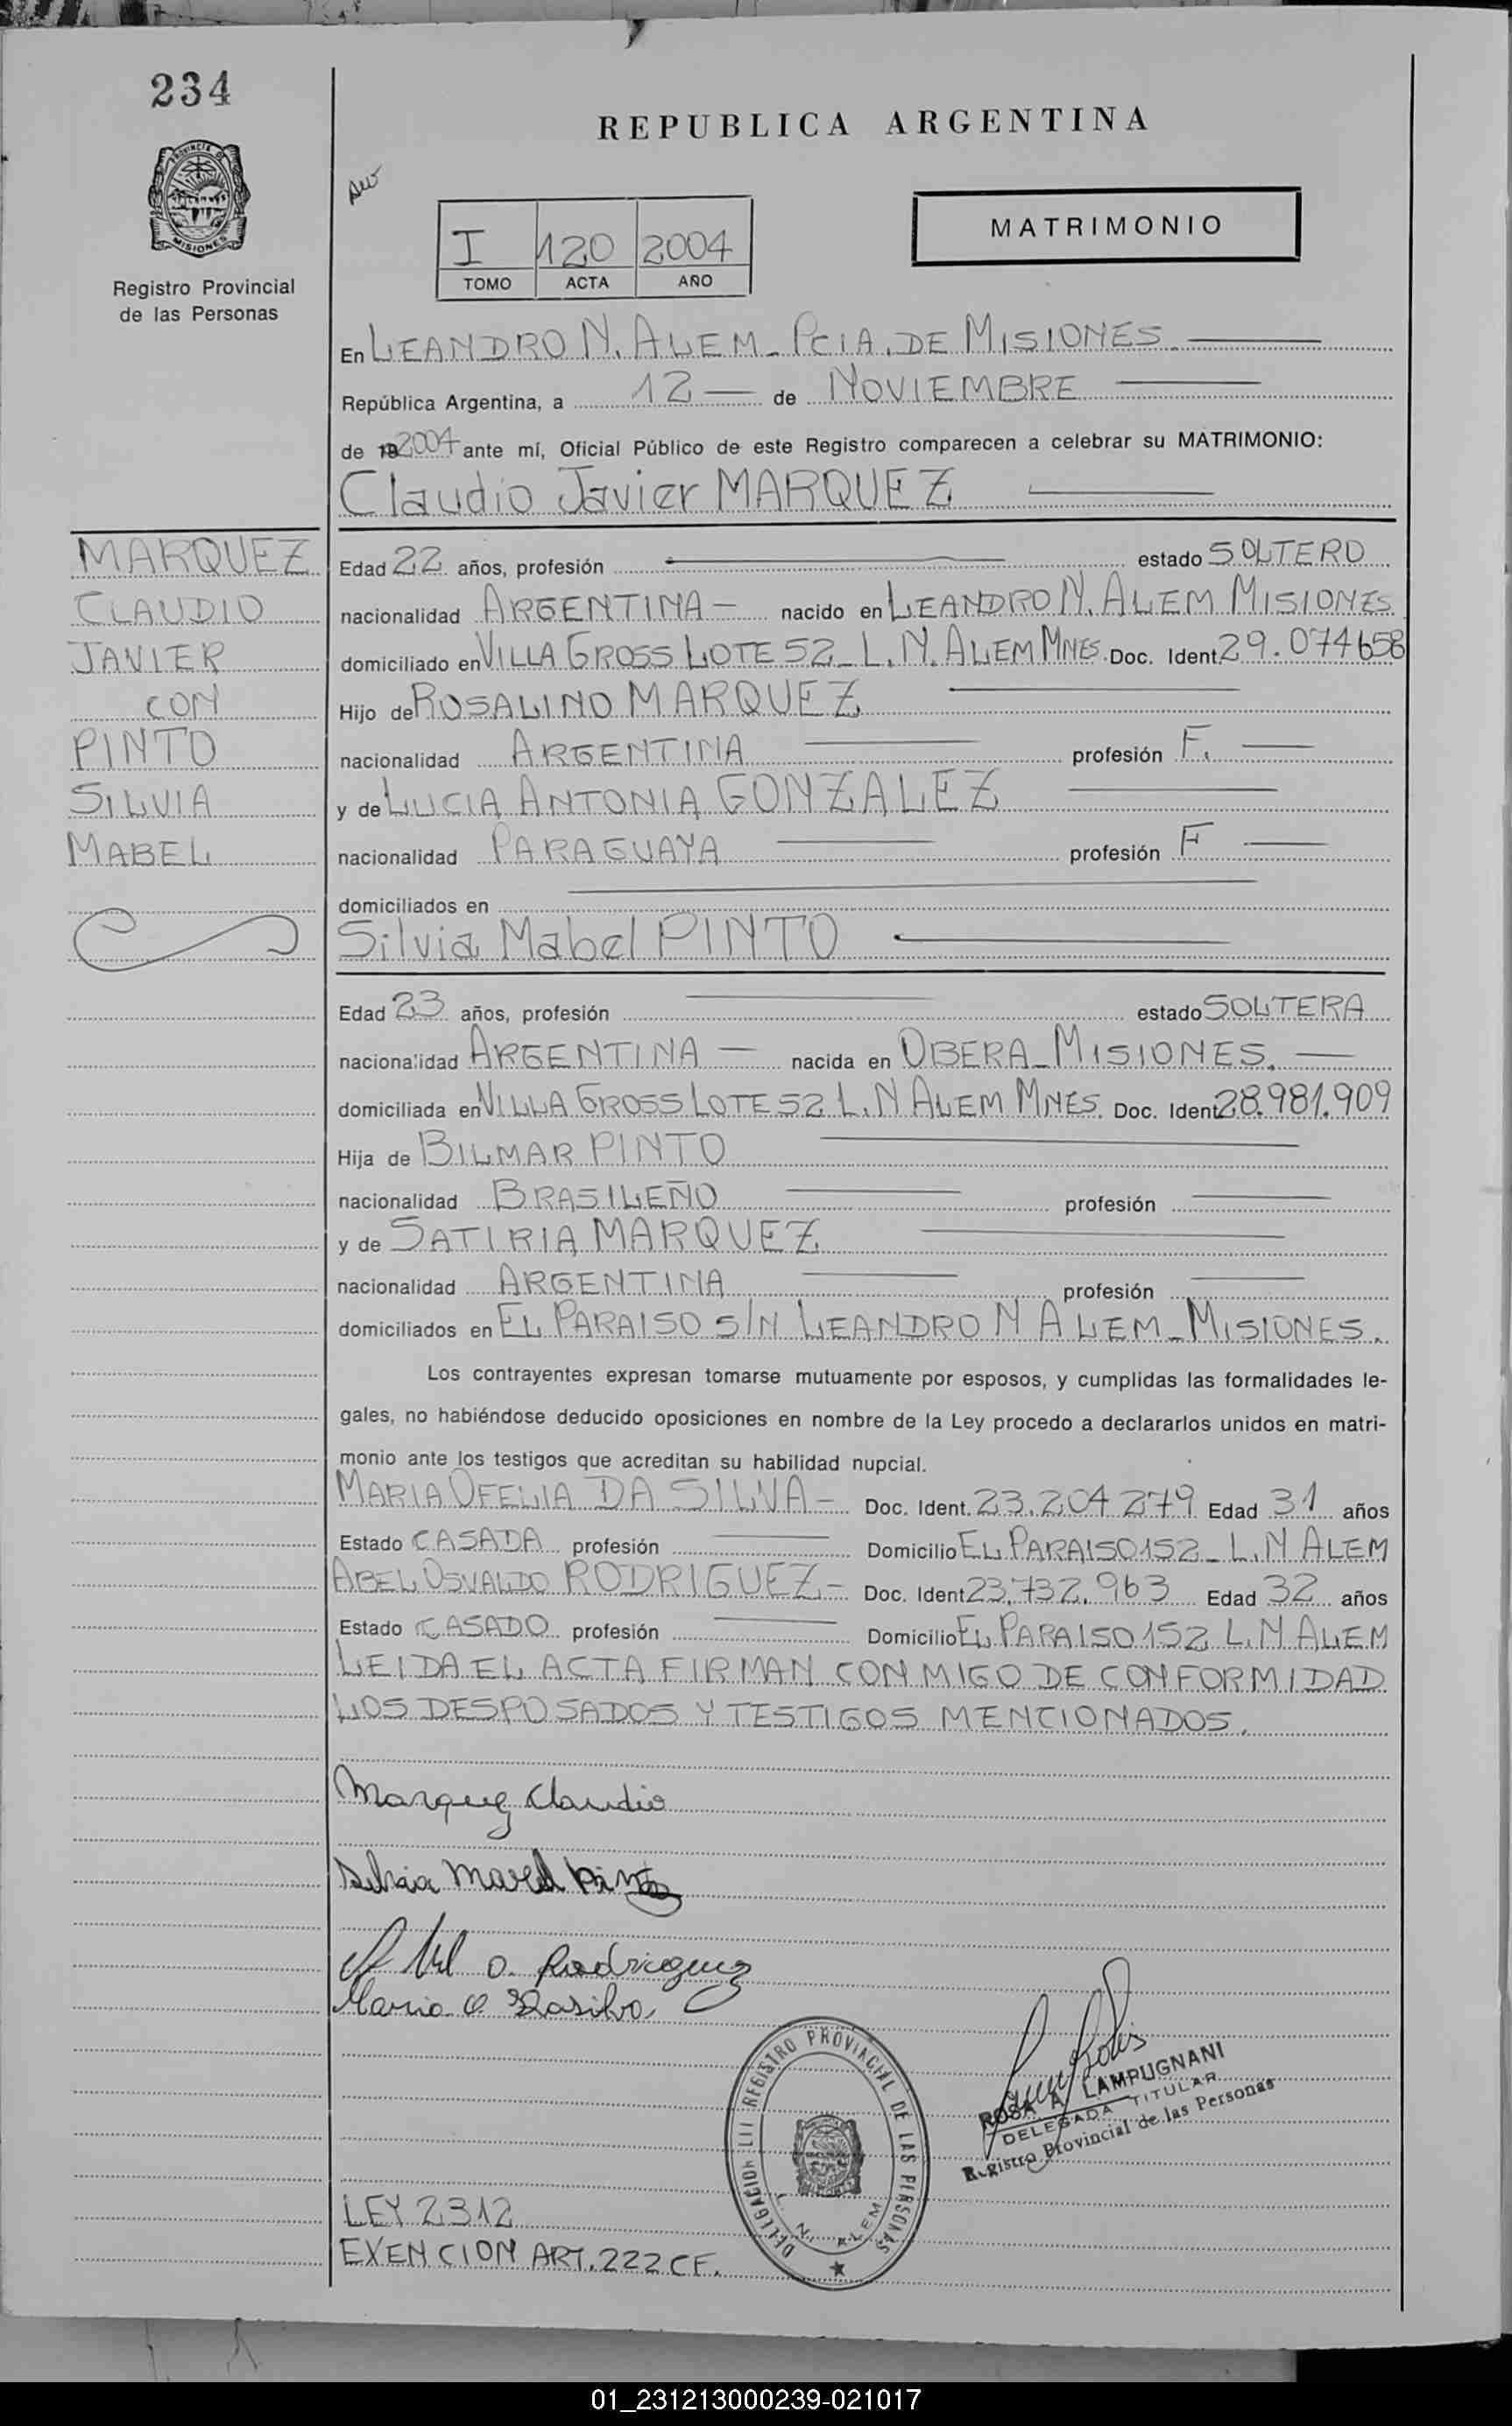 234
PROVINCIA DE
MISIONES
Registro Provincial
de las Personas
REPUBLICA ARGENTINA
I 120 2004
TOMO ACTA AÑO
MATRIMONIO
En LEANDRO N. ALEM - PCIA. DE MISIONES
República Argentina, a 12 de NOVIEMBRE
de 2004 ante mí, Oficial Público de este Registro comparecen a celebrar su MATRIMONIO:
Claudio Javier MARQUEZ
MARQUEZ
CLAUDIO
JAVIER
CON
PINTO
SILVIA
MABEL
Edad 22 años, profesión estado SOLTERO
nacionalidad ARGENTINA - nacido en LEANDRO N. ALEM MISIONES
domiciliado en VILLA GROSS LOTE 52 - L. N. ALEM MNES. Doc. Ident. 29.074658
Hijo de ROSALINO MARQUEZ
nacionalidad ARGENTINA profesión F.
y de LUCIA ANTONIA GONZALEZ
nacionalidad PARAGUAYA profesión F
domiciliados en
Silvia Mabel PINTO
Edad 23 años, profesión estado SOLTERA
nacionalidad ARGENTINA - nacida en OBERA - MISIONES.
domiciliada en VILLA GROSS LOTE 52 L. N ALEM MNES. Doc. Ident. 28.981.909
Hija de BILMAR PINTO
nacionalidad BRASILEÑO profesión
y de SATIRIA MARQUEZ
nacionalidad ARGENTINA profesión
domiciliados en EL PARAISO S/N LEANDRO N ALEM - MISIONES.
Los contrayentes expresan tomarse mutuamente por esposos, y cumplidas las formalidades le-
gales, no habiéndose deducido oposiciones en nombre de la Ley procedo a declararlos unidos en matri-
monio ante los testigos que acreditan su habilidad nupcial.
MARIA OFELIA DA SILVA - Doc. Ident. 23.204279 Edad 31 años
Estado CASADA profesión Domicilio EL PARAISO 152 - L. N ALEM
ABEL OSVALDO RODRIGUEZ - Doc. Ident. 23.732.963 Edad 32 años
Estado CASADO profesión Domicilio EL PARAISO 152 L. N ALEM
LEIDA EL ACTA FIRMAN CONMIGO DE CONFORMIDAD
LOS DESPOSADOS Y TESTIGOS MENCIONADOS.
Marquez Claudio
Silvia Mabel Pinto
Abel O. Rodriguez
Maria O Dasilva
DELEGACION LII REGISTRO PROVINCIAL DE LAS PERSONAS
L. N. ALEM
ROSA A. LAMPUGNANI
DELEGADA TITULAR
Registro Provincial de las Personas
LEY 2312
EXENCION ART. 222 CF.
01_231213000239-021017